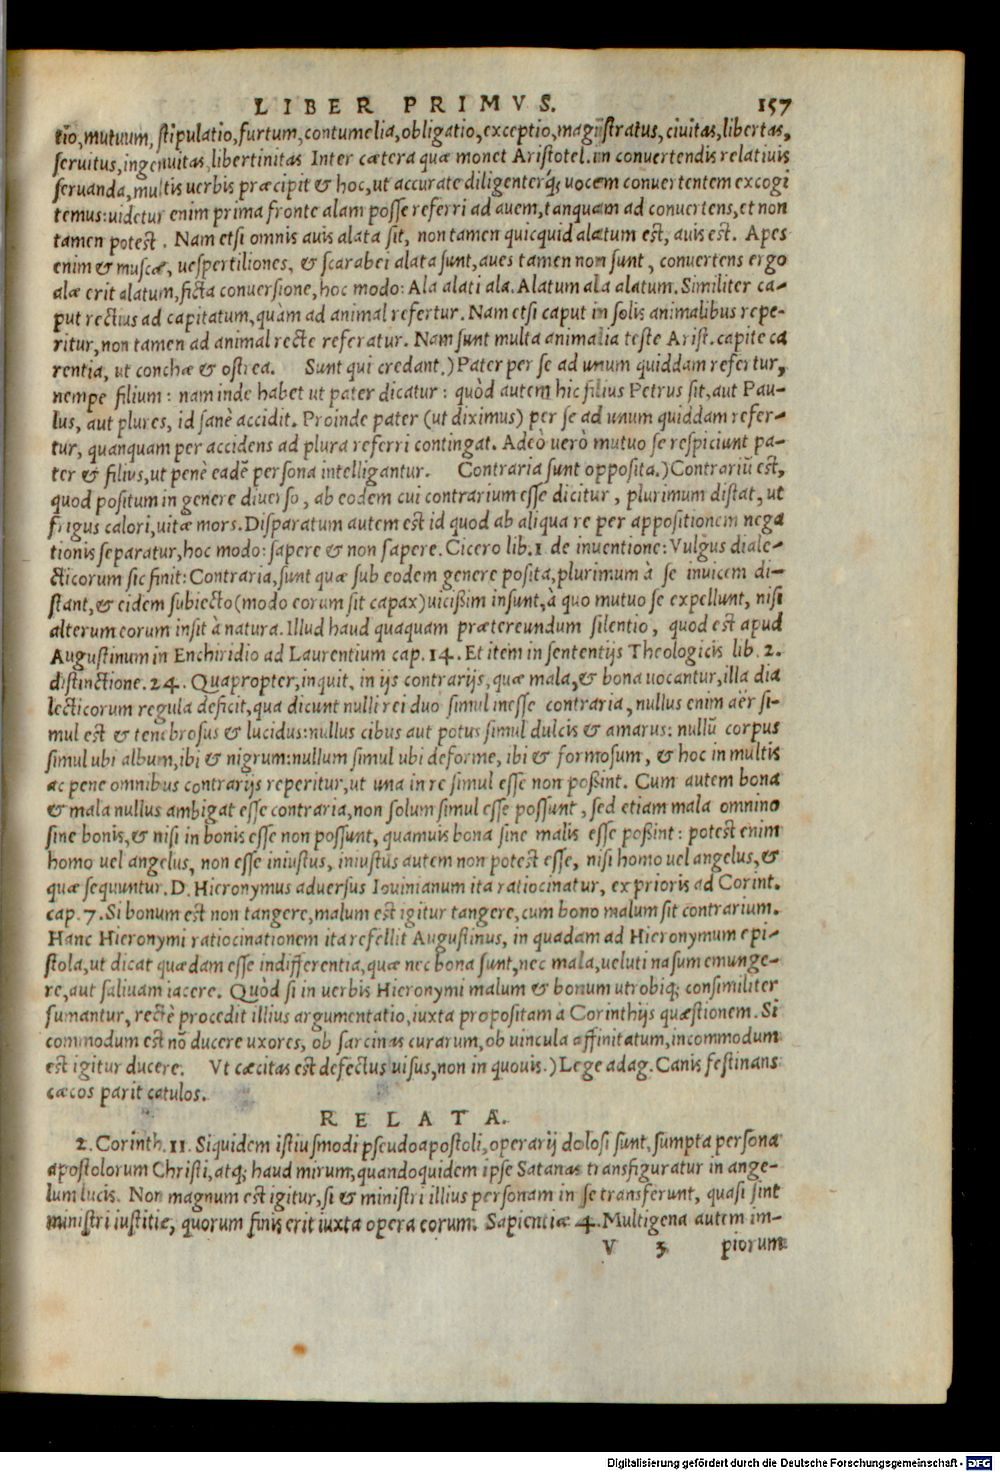 LIBER PRIMVS. 157
tio, mutuum, stipulatio, furtum, contumelia, obligatio, exceptio, magistratus, ciuitas, libertas,
seruitus, ingenuitas, libertinitas Inter cætera quæ monet Aristotel. in conuertendis relatiuis
seruanda, multis uerbis præcipit & hoc, ut accurate diligenterq́; uocem conuertentem excogi
temus: uidetur enim prima fronte alam posse referri ad auem, tanquam ad conuertens, et non
tamen potest. Nam etsi omnis auis alata sit, non tamen quicquid alatum est, auis est. Apes
enim & muscæ, uespertiliones, & scarabei alata sunt, aues tamen non sunt, conuertens ergo
alæ erit alatum, ficta conuersione, hoc modo: Ala alati ala. Alatum ala alatum. Similiter ca-
put rectius ad capitatum, quàm ad animal refertur. Nam etsi caput in solis animalibus repe-
ritur, non tamen ad animal recte referatur. Nam sunt multa animalia teste Arist. capite ca
rentia, ut conchæ & ostrea. Sunt qui credant.) Pater per se ad unum quiddam refertur,
nempe filium: nam inde habet ut pater dicatur: quòd autem hic filius Petrus sit, aut Pau-
lus, aut plures, id sanè accidit. Proinde pater (ut diximus) per se ad unum quiddam refer-
tur, quanquam per accidens ad plura referri contingat. Adeò uerò mutuo se respiciunt pa-
ter & filius, ut penè eadẽ persona intelligantur. Contraria sunt opposita.) Contrariũ est,
quod positum in genere diuerso, ab eodem cui contrarium esse dicitur, plurimum distat, ut
frigus calori, uitæ mors. Disparatum autem est id quod ab aliqua re per appositionem nega
tionis separatur, hoc modo: sapere & non sapere. Cicero lib. 1. de inuentione: Vulgus diale-
cticorum sic finit: Contraria, sunt quæ sub eodem genere posita, plurimum à se inuicem di-
stant, & eidem subiecto (modo eorum sit capax) uicißim insunt, à quo mutuo se expellunt, nisi
alterum eorum insit à natura. Illud haud quaquam prætereundum silentio, quod est apud
Augustinum in Enchiridio ad Laurentium cap. 14. Et item in sententijs Theologicis lib. 2.
distinctione. 24. Quapropter, inquit, in ijs contrarijs, quæ mala, & bona uocantur, illa dia
lecticorum regula deficit, qua dicunt nulli rei duo simul inesse contraria, nullus enim aër si-
mul est & tenebrosus & lucidus: nullus cibus aut potus simul dulcis & amarus: nullũ corpus
simul ubi album, ibi & nigrum: nullum simul ubi deforme, ibi & formosum, & hoc in multis
ac pene omnibus contrarijs reperitur, ut una in re simul esse non poßint. Cum autem bona
& mala nullus ambigat esse contraria, non solum simul esse possunt, sed etiam mala omnino
sine bonis, & nisi in bonis esse non possunt, quamuis bona sine malis esse poßint: potest enim
homo uel angelus, non esse iniustus, iniustus autem non potest esse, nisi homo uel angelus, &
quæ sequuntur. D. Hieronymus aduersus Iouinianum ita ratiocinatur, ex prioris ad Corint.
cap. 7. Si bonum est non tangere, malum est igitur tangere, cum bono malum sit contrarium.
Hanc Hieronymi ratiocinationem ita refellit Augustinus, in quadam ad Hieronymum epi-
stola, ut dicat quædam esse indifferentia, quæ nec bona sunt, nec mala, ueluti nasum emunge-
re, aut saliuam iacere. Quòd si in uerbis Hieronymi malum & bonum utrobiq; consimiliter
sumantur, rectè procedit illius argumentatio, iuxta propositam à Corinthijs quæstionem. Si
commodum est nõ ducere uxores, ob sarcinas curarum, ob uincula affinitatum, incommodum
est igitur ducere. Vt cæcitas est defectus uisus, non in quouis.) Lege adag. Canis festinans
cæcos parit catulos.
RELATA.
2. Corinth. 11. Siquidem istiusmodi pseudoapostoli, operarij dolosi sunt, sumpta persona
apostolorum Christi, atq; haud mirum, quandoquidem ipse Satanas transfiguratur in ange-
lum lucis. Non magnum est igitur, si & ministri illius personam in se transferunt, quasi sint
ministri iustitiæ, quorum finis erit iuxta opera eorum. Sapientiæ 4. Multigena autem im-
V 3 piorum
Digitalisierung gefördert durch die Deutsche Forschungsgemeinschaft - DFG